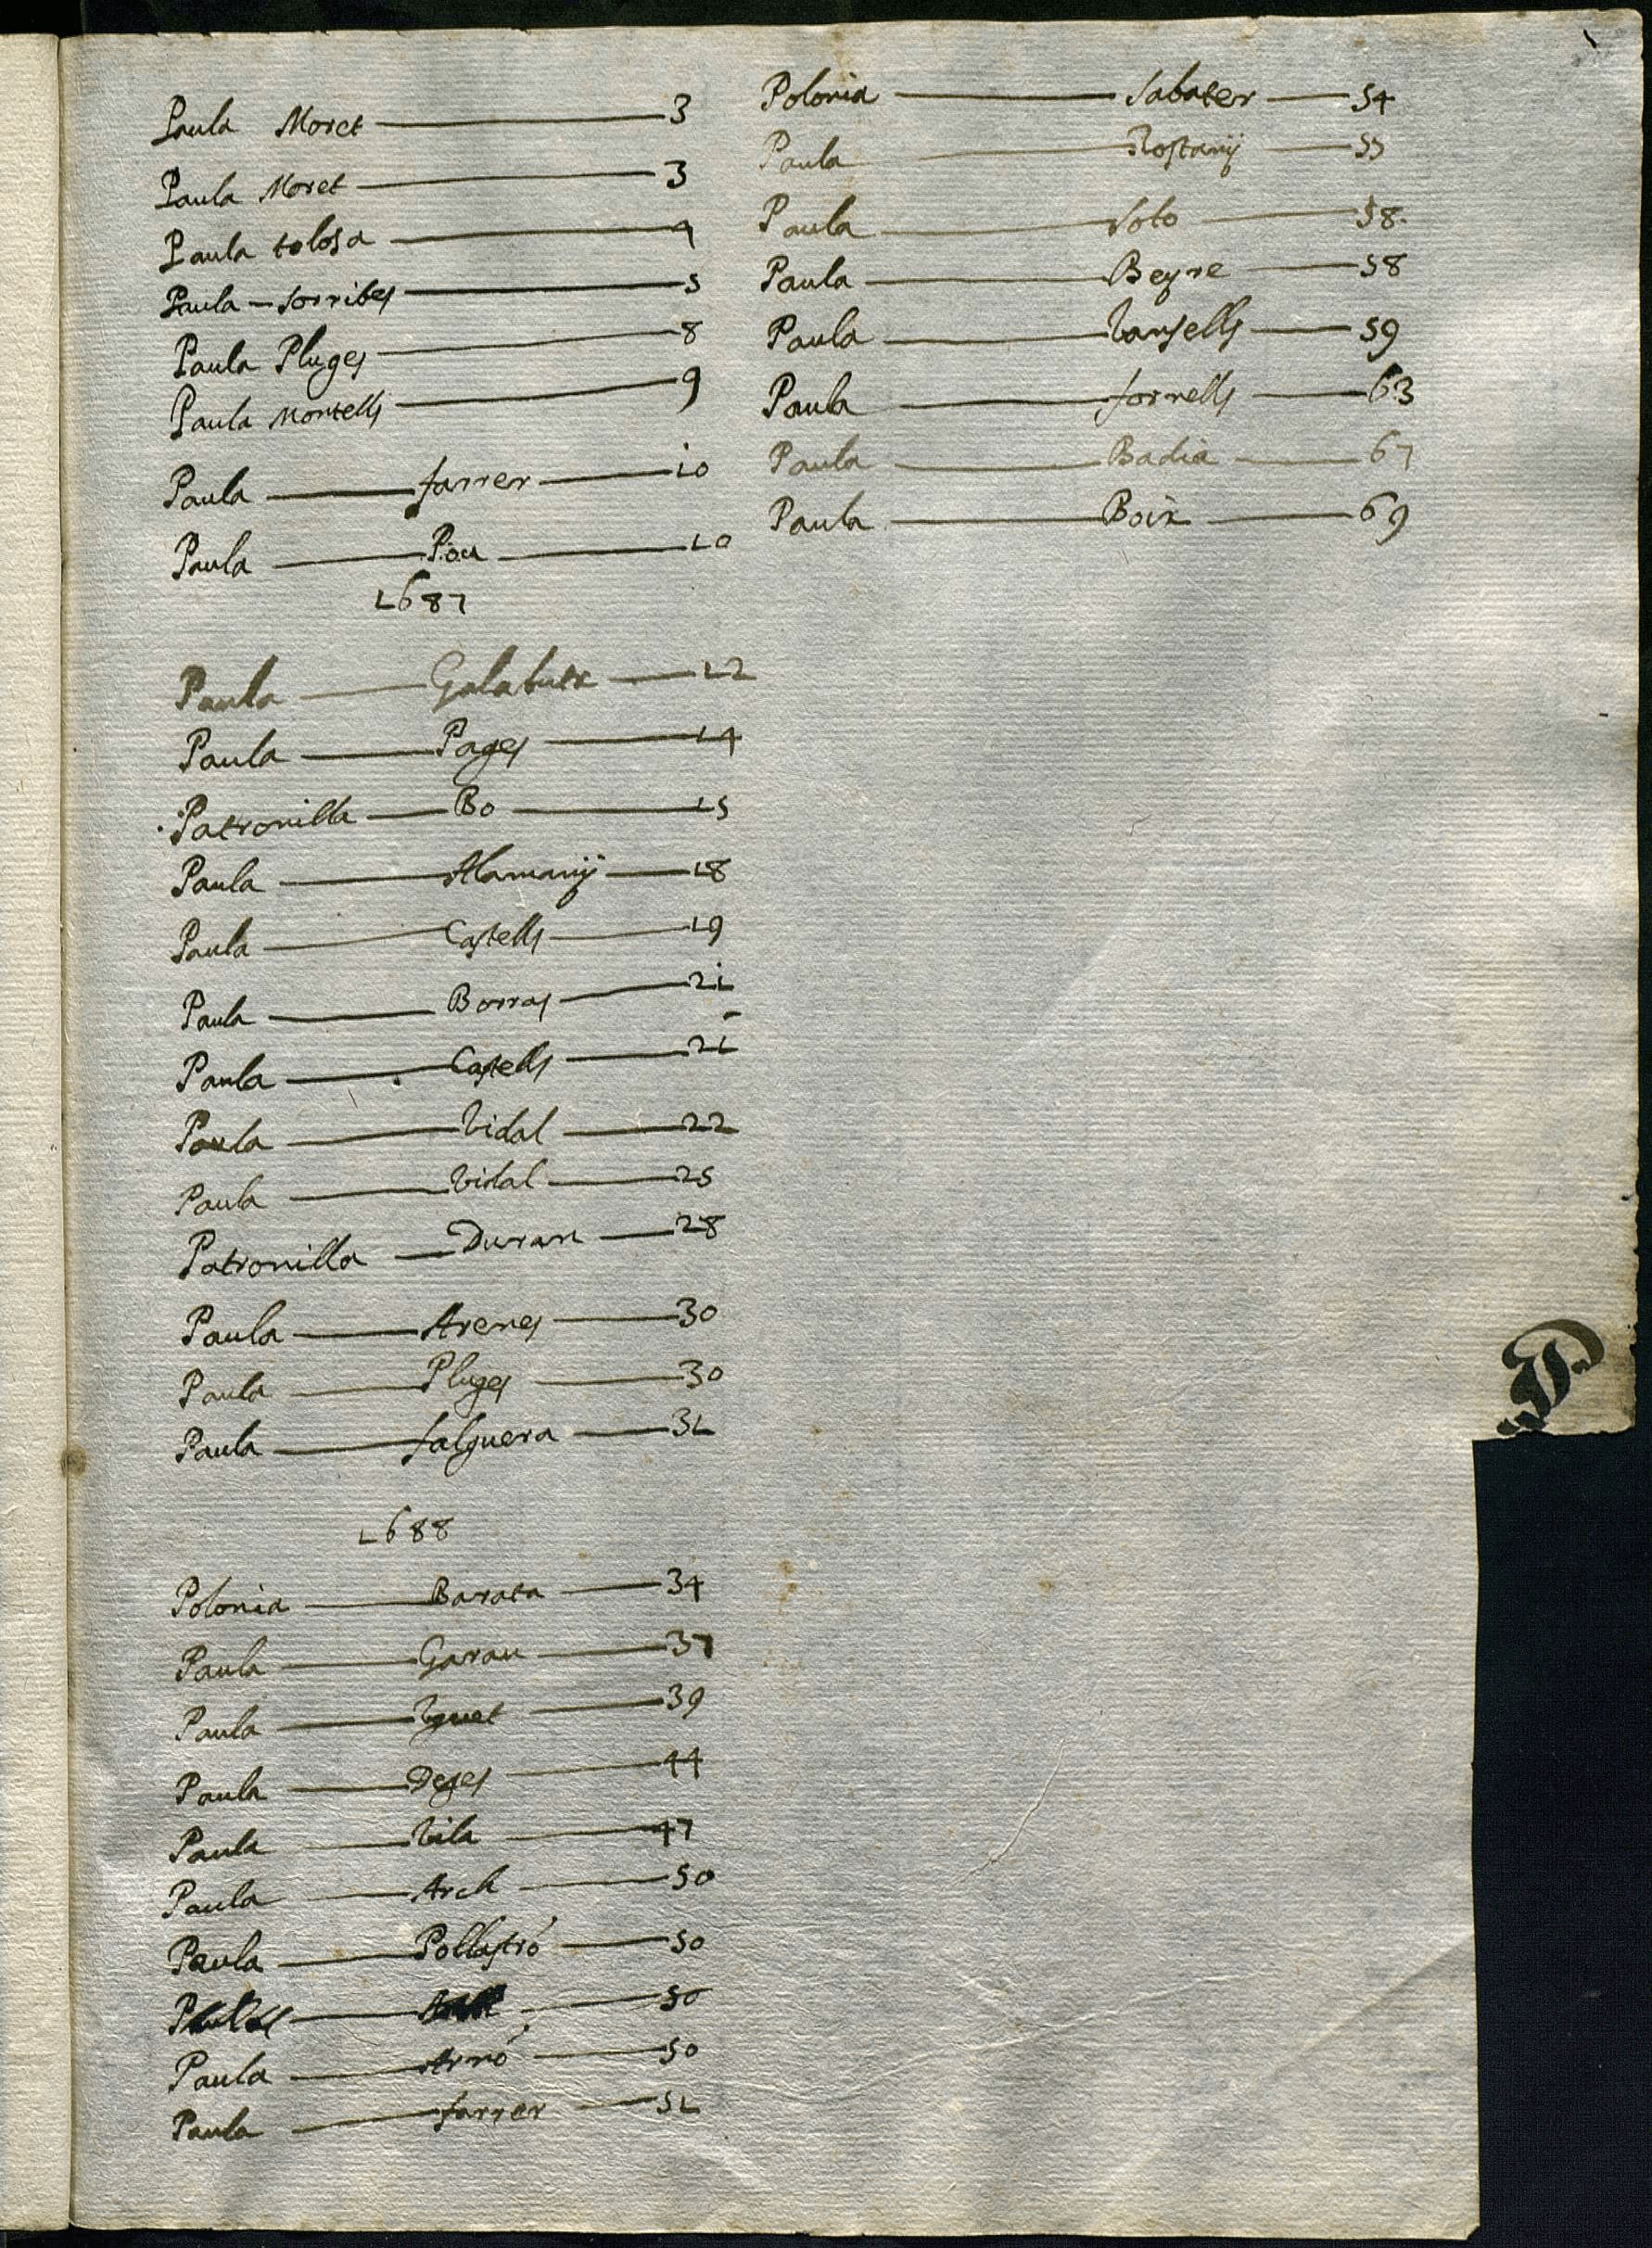 Paula Moret 3
Paula Moret 3
Paula tolosa 4
Paula sorribes 5
Paula Pluges 8
Paula Montells 9
Paula farrer 10
Paula Pou 10
1687
Paula 12
Paula Pages 14
Patronilla Bo 15
Paula Alamanÿ 18
Paula Castells 19
Paula Borras 21
Paula Castells 21
Paula Vidal 22
Paula Vidal 25
Patronilla Duran 28
Paula Arenes 30
Paula Pluges 30
Paula falguera 31
1688
Polonia Barata 34
Paula Garau 37
Paula 39
Paula Deges 44
Paula Vila 47
Paula Arch 50
Paula Pollastró 50
50
Paula Arnó 50
Paula farrer 51
Polonia Sabater 54
Paula Rostanÿ 55
Paula Soto 58
Paula Beyre 58
Paula Vansells 59
Paula fornells 63
Paula Badia 67
Paula Boix 69
P